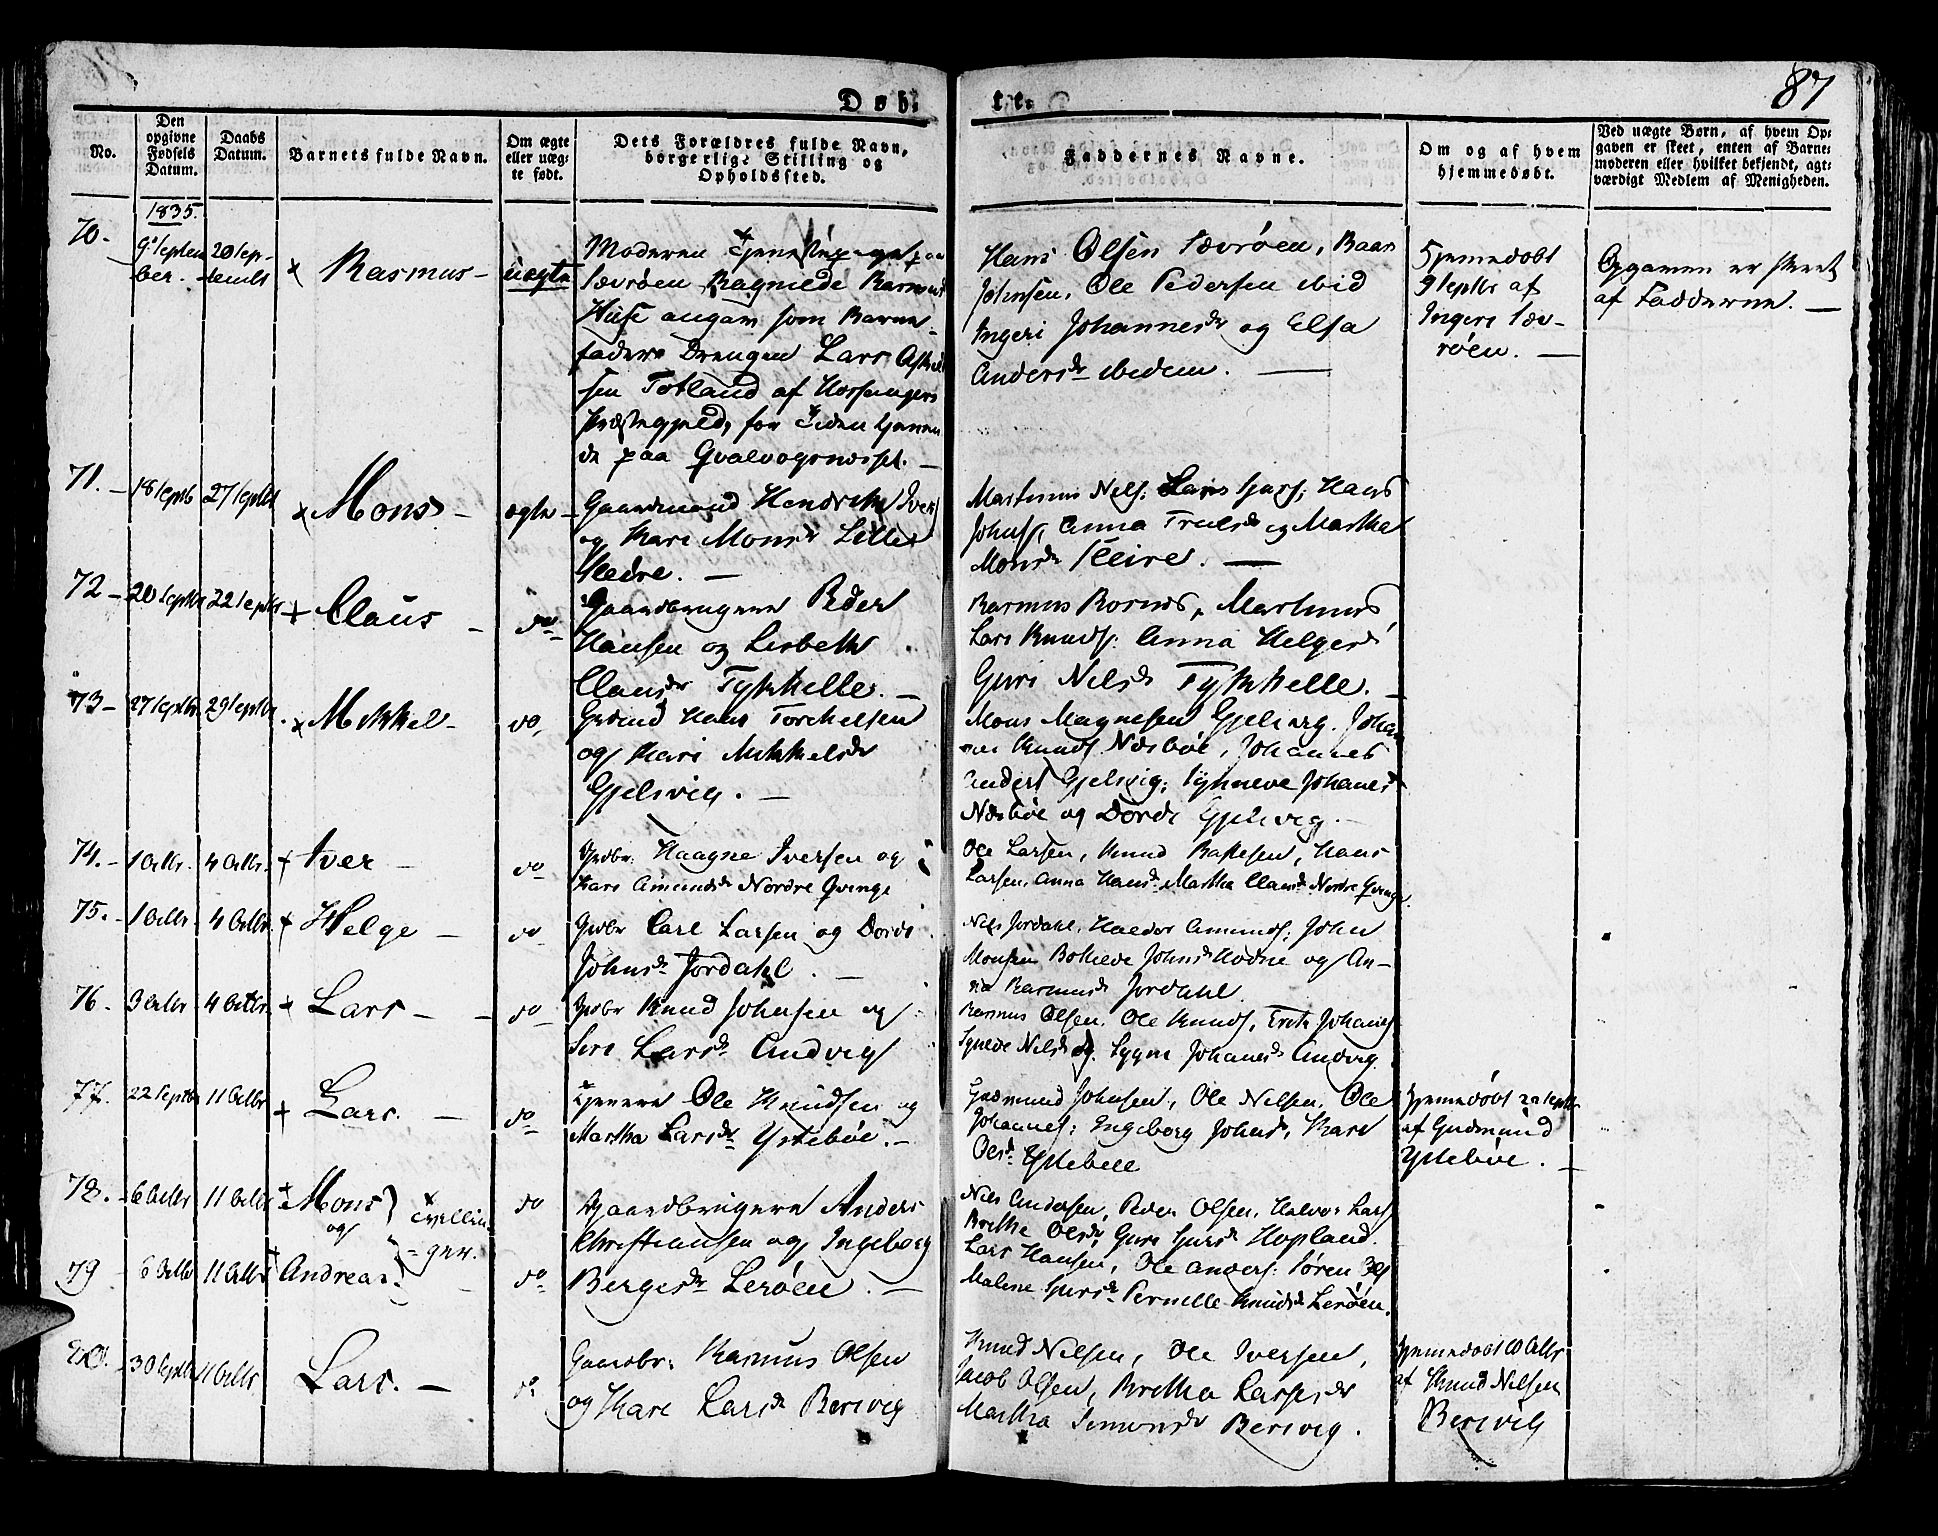 87
Døb-
te.
No.
Den opgivne Fødsels Datum.
Daabs Datum.
Barnets fulde Navn.
Om ægte eller uæg- te født.
Dets Forældres fulde Navn, borgerlige Stilling og Opholdssted.
Faddernes Navne.
Om og af hvem hjemmedøbt.
Ved uægte Børn, af hvem Op- gaven er skeet, enten af Barne- moderen eller hvilket bekjendt, agt- værdigt Medlem af Menigheden.
1835.
70.
9 Septem
ber.
20 Sep-
tembr
Rasmus
uægte
Moderen
Sævrøen Ragnilde Rasmusd
Huse angav som Barne-
fader Drengen Lars
sen Totland af Hossangers
Præstegjeld, for Tiden tjenen
de paa Qvalvogsnesset.
Hans Olsen Sævrøen,
Johnsen, Ole Pedersen ibid
Ingeri Johannesdr og Elsa
Andersdr ibidem.
Hjemmedøbt
9 Septbr af
Ingeri Sæv-
røen.
Opgaven er skeet
af Fadderne.
71.
18 Septb
27 Septbr
Mons
ægte
Gaardmand Hendrik Ivers
og Kari Monsdr Lille
Martinus Nils: Lars Hans
Johns, Anna Trulsdr og Martha
Monsdr
72
20 Septbr
22 Septbr
Claus
do
Gaardbrugere Peder
Hansen og Lisbeth
Clausdr Tykhelle.
Rasmus Martinus
Lars Knuds: Anna Helges
Guri Nilsdr Tykhelle.
73
27 Septbr
29 Septbr.
Mikkel
do
Grdmd Hans Torkelsen
og Kari Mikkelsdr
Gjelsvig.
Mons Magnesen Gjelsvig. Johan
nes Knuds Nesbøe, Johannes
Anders Gjelsvig, Synneve Johanesdr
Nesbøe og Dorde Gjelsvig.
74.
1 Octbr.
4 Octbr.
Iver
do
Grdbr. Haagne Iversen og
Kari Amundsdr Nordre Qvinge
Ole Larsen, Knud Hans
Larsen, Anna Hansdr Martha Clausdr Nordre Qvinge.
75.
1 Octbr
4 Octbr.
Helge
do
Grdbr Carl Larsen og Dorde
Johnsdr Jordahl.
Nils Jordahl, Haldor Amunds, John
Monsen Botilde Johnsdr og An-
na Rasmusdr Jordahl.
76.
3 Octbr
4 Octbr.
Lars
do
Grdbr Knud Johnsen og
Siri Larsdr Andvig
Rasmus Olsen, Ole Knuds, Johannes
Synede Nilsdr og Johanesdr Andvig.
77.
22 Septbr
11 Octbr
Lars.
do
Tjenere Ole Knudsen og
Martha Larsdr Ystebøe.
Gudmund Johnsen, Ole Nilsen, Ole
Johannes; Ingeborg Johnsdr, Kari
Olsdr Ystebøe
Hjemmedøbt 22 Septbr
af Gudmund
Ystebøe.
78.
6 Octbr
11 Octbr
Mons
og
Tvillin
ger.
do
Gaardbrugere Anders
Christiansen og Ingeborg
Nils Andersen, Peder Olsen, Halvor Lars
Brithe Olsdr, Guri Hopland.
79
6 Octbr
11 Octbr
Andreas.
do
Bergesdr Lerøen.
Lars Hansen, Ole Anders: Søren
Malene Pernille Knudsdr Lerøen.
80.
30 Septbr
11 Octbr
Lars.
do
Gaardbr: Rasmus Olsen
og Kari Larsdr Berivig
Knud Nilsen, Ole Iversen,
Jacob Olsen, Britha Larsesdr
Martha Simonsdr Berivig.
Hjemmedøbt 10 Octbr
af Knud Nilsen
Berivig